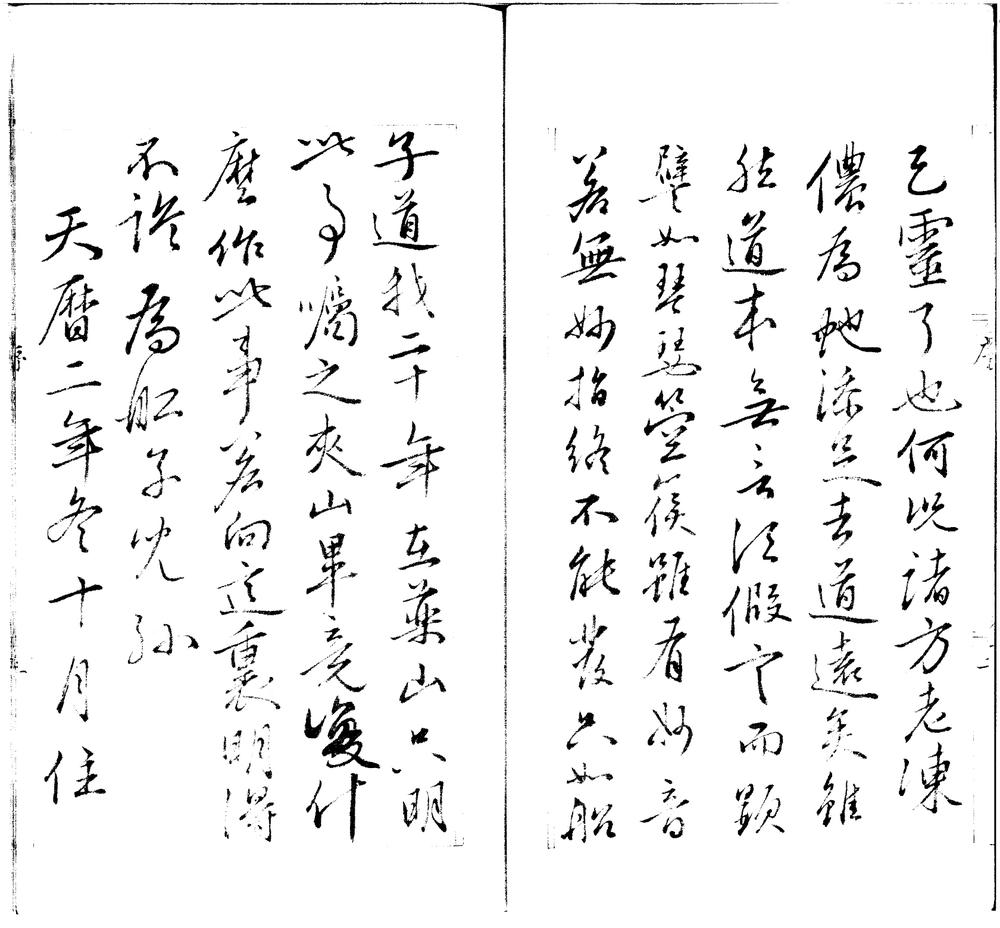 己靈了也何況諸方老凍
儂為虵添足去道遠矣雖
然道本無言須假言而顯
譬如琴瑟箜篌雖有妙音
若無妙指終不能發只如船
子道我二十年在藥山只明
此事囑之夾山畢竟復什
麼作此事若向這裏明得
不謬為船子兒孫
天曆二年冬十月住